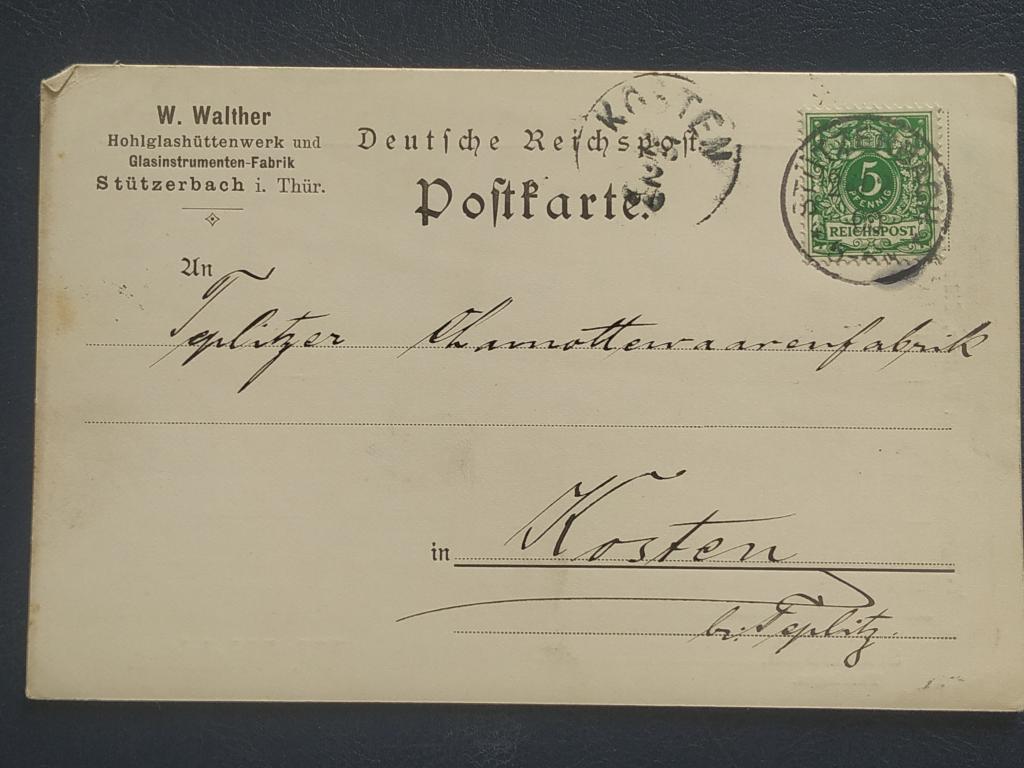 W. Walther
Hohlglashüttenwerk und
Glasinstrumenten-Fabrik
Stützerbach i. Thür.
Deutsche Reichspost.
Postkarte.
KOSTEN
5
PFENNIG
REICHSPOST
An
Teplitzer Chamottewaarenfabrik
in Kosten
bei Teplitz.